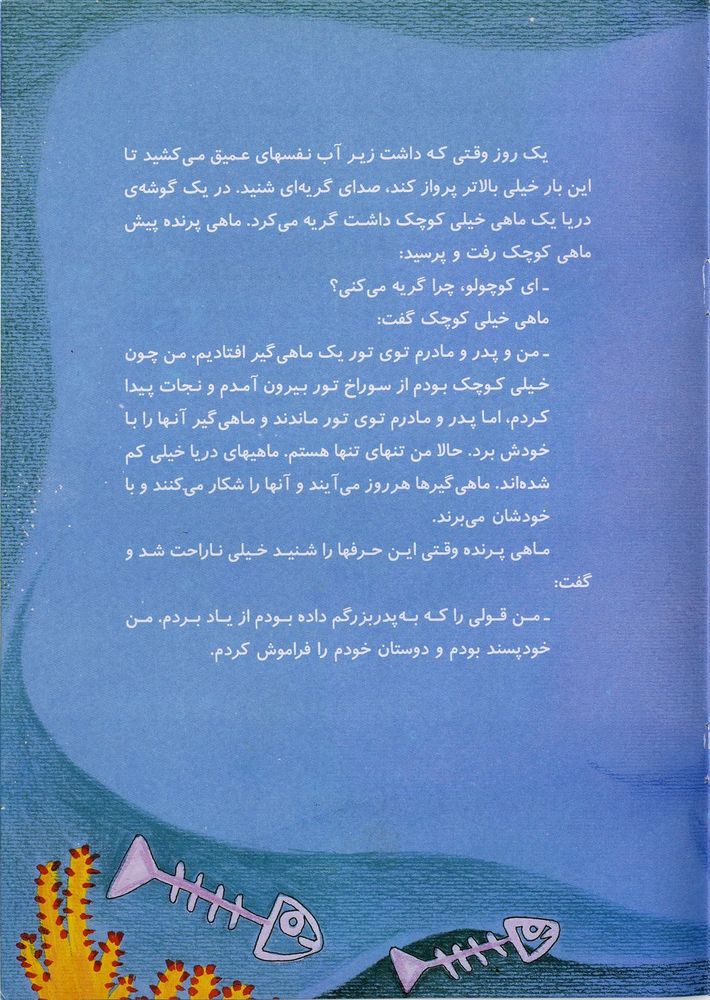 یک روز وقتی که داشت زیر آب نفسهای عمیق می‌کشید تا
این بار خیلی بالاتر پرواز کند، صدای گریه‌ای شنید. در یک گوشه‌ی
دریا یک ماهی خیلی کوچک داشت گریه می‌کرد. ماهی پرنده پیش
ماهی کوچک رفت و پرسید:
ـ ای کوچولو، چرا گریه می‌کنی؟
ماهی خیلی کوچک گفت:
ـ من و پدر و مادرم توی تور یک ماهی‌گیر افتادیم. من چون
خیلی کوچک بودم از سوراخ تور بیرون آمدم و نجات پیدا
کردم، اما پدر و مادرم توی تور ماندند و ماهی‌گیر آنها را با
خودش برد. حالا من تنهای تنها هستم. ماهیهای دریا خیلی کم
شده‌اند. ماهی‌گیرها هرروز می‌آیند و آنها را شکار می‌کنند و با
خودشان می‌برند.
ماهی پرنده وقتی این حرفها را شنید خیلی ناراحت شد و
گفت:
ـ من قولی را که به‌پدربزرگم داده بودم از یاد بردم. من
خودپسند بودم و دوستان خودم را فراموش کردم.